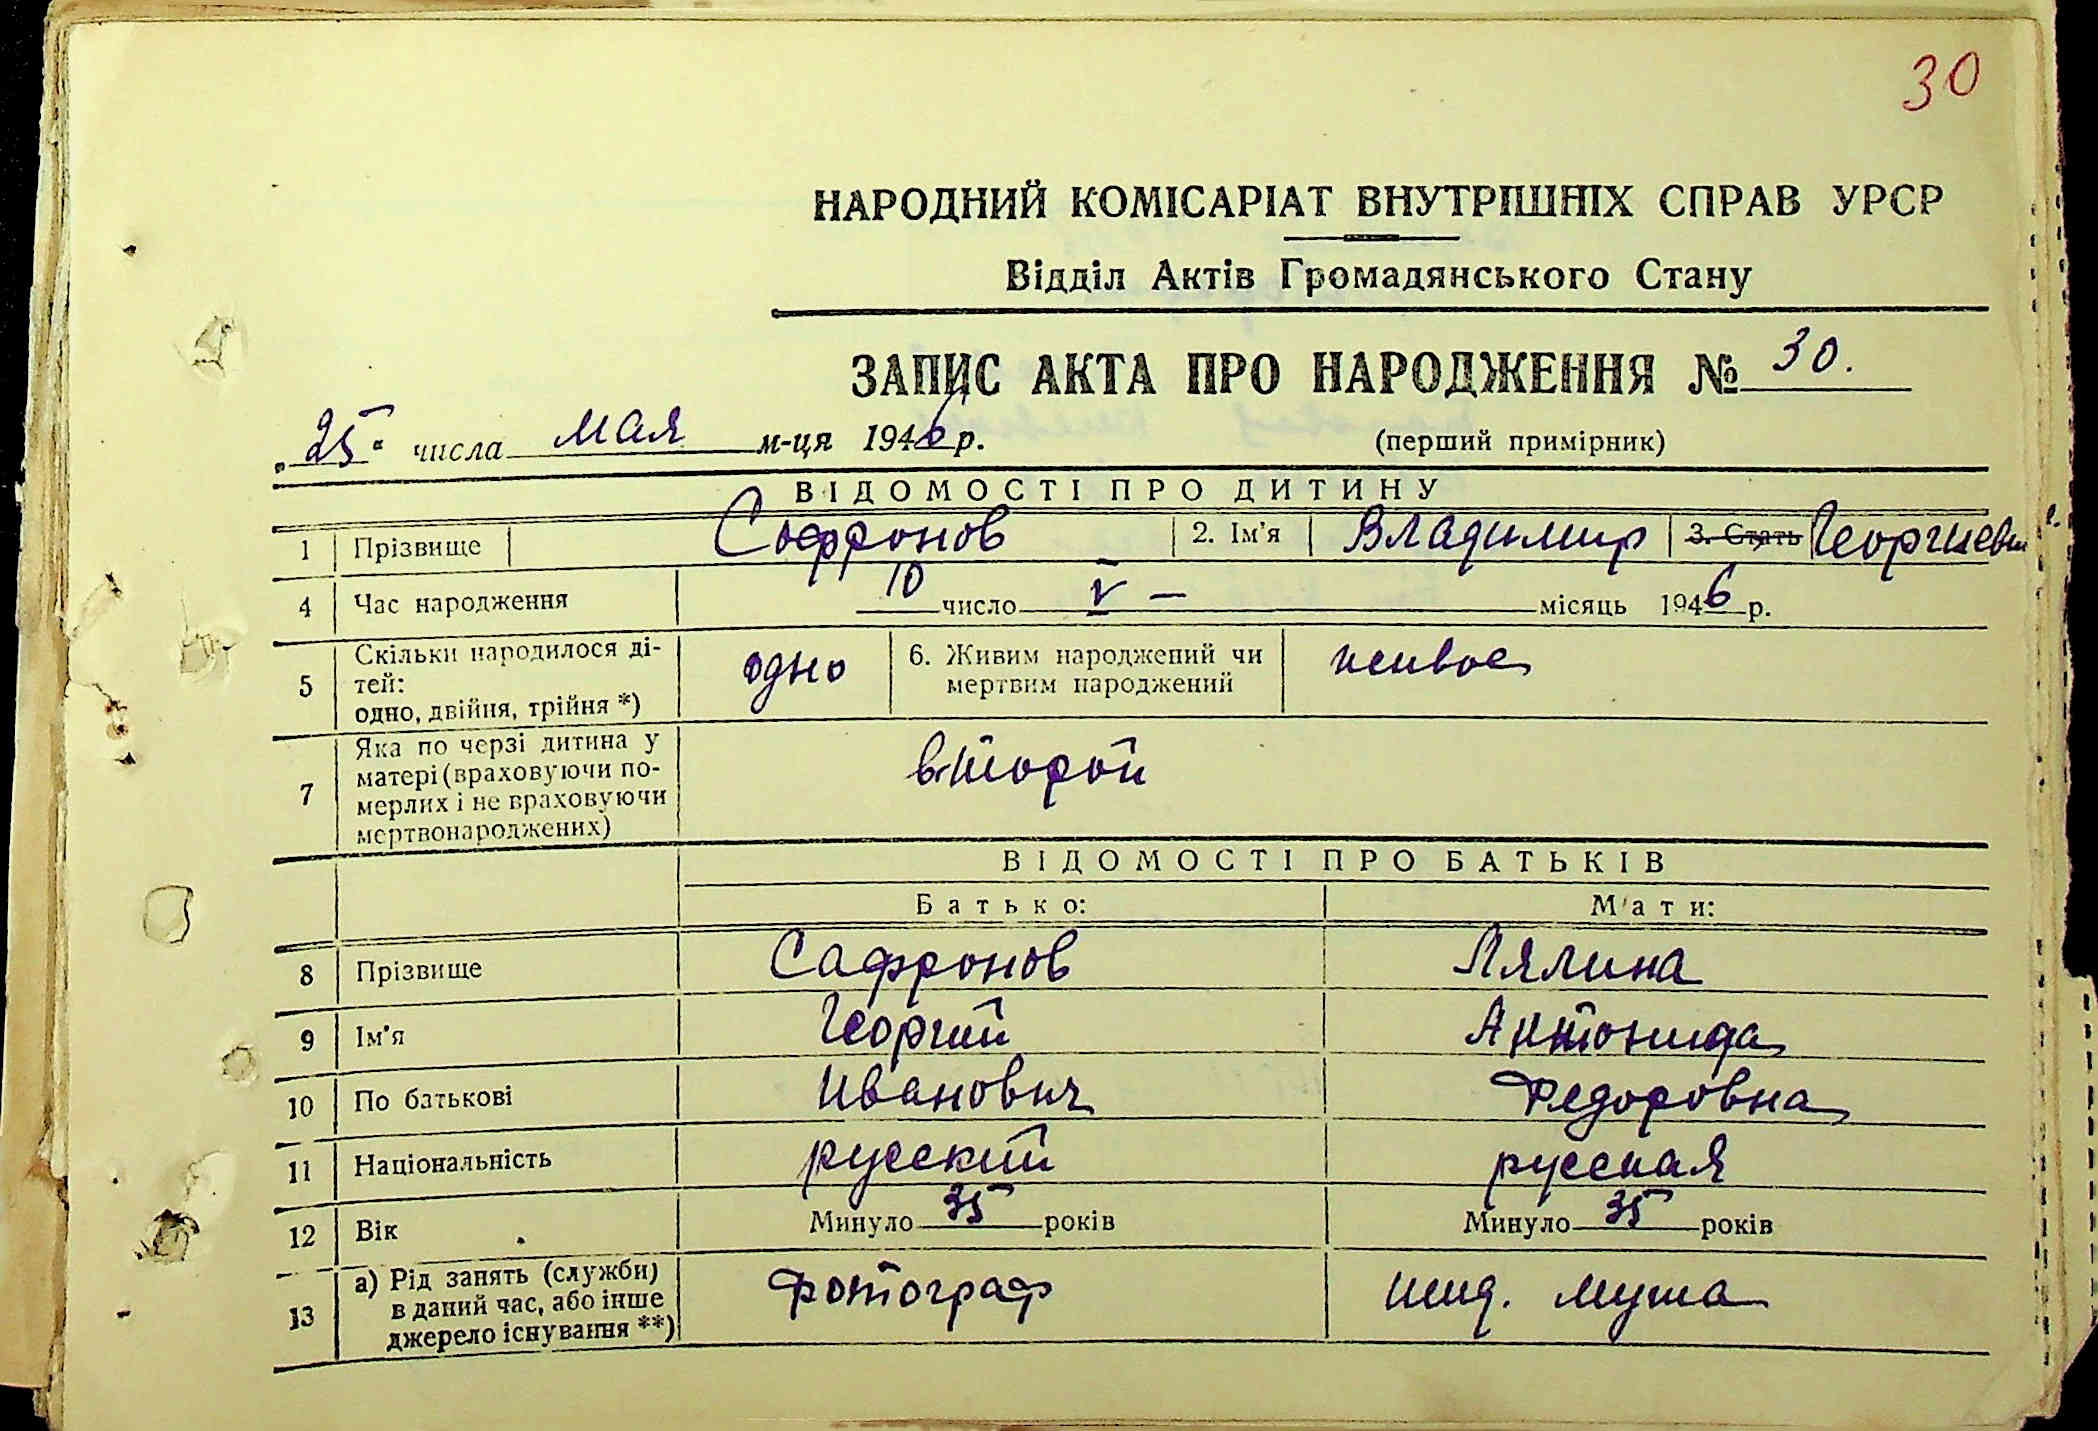 30
НАРОДНИЙ КОМІСАРІАТ ВНУТРІШНІХ СПРАВ УРСР
Відділ Актів Громадянського Стану
ЗАПИС АКТА ПРО НАРОДЖЕННЯ № 30.
„25“ числа мая м-ця 1946 р.
(перший примірник)
ВІДОМОСТІ ПРО ДИТИНУ
1 Прізвище Сафронов 2. Ім'я Владимир 3. Стать Георгиевич
4 Час народження 10 число V – місяць 1946 р.
5 Скільки народилося ді-
тей:
одно, двійня, трійня *) одно
6. Живим народжений чи
мертвим народжений живое
7 Яка по черзі дитина у
матері (враховуючи по-
мерлих і не враховуючи
мертвонароджених) второй
ВІДОМОСТІ ПРО БАТЬКІВ
Батько: Мати:
8 Прізвище Сафронов Лялина
9 Ім'я Георгий Антонида
10 По батькові Иванович Федоровна
11 Національність русский русская
12 Вік Минуло 35 років Минуло 35 років
13 а) Рід занять (служби)
в даний час, або інше
джерело існування **) Фотограф ижд. мужа